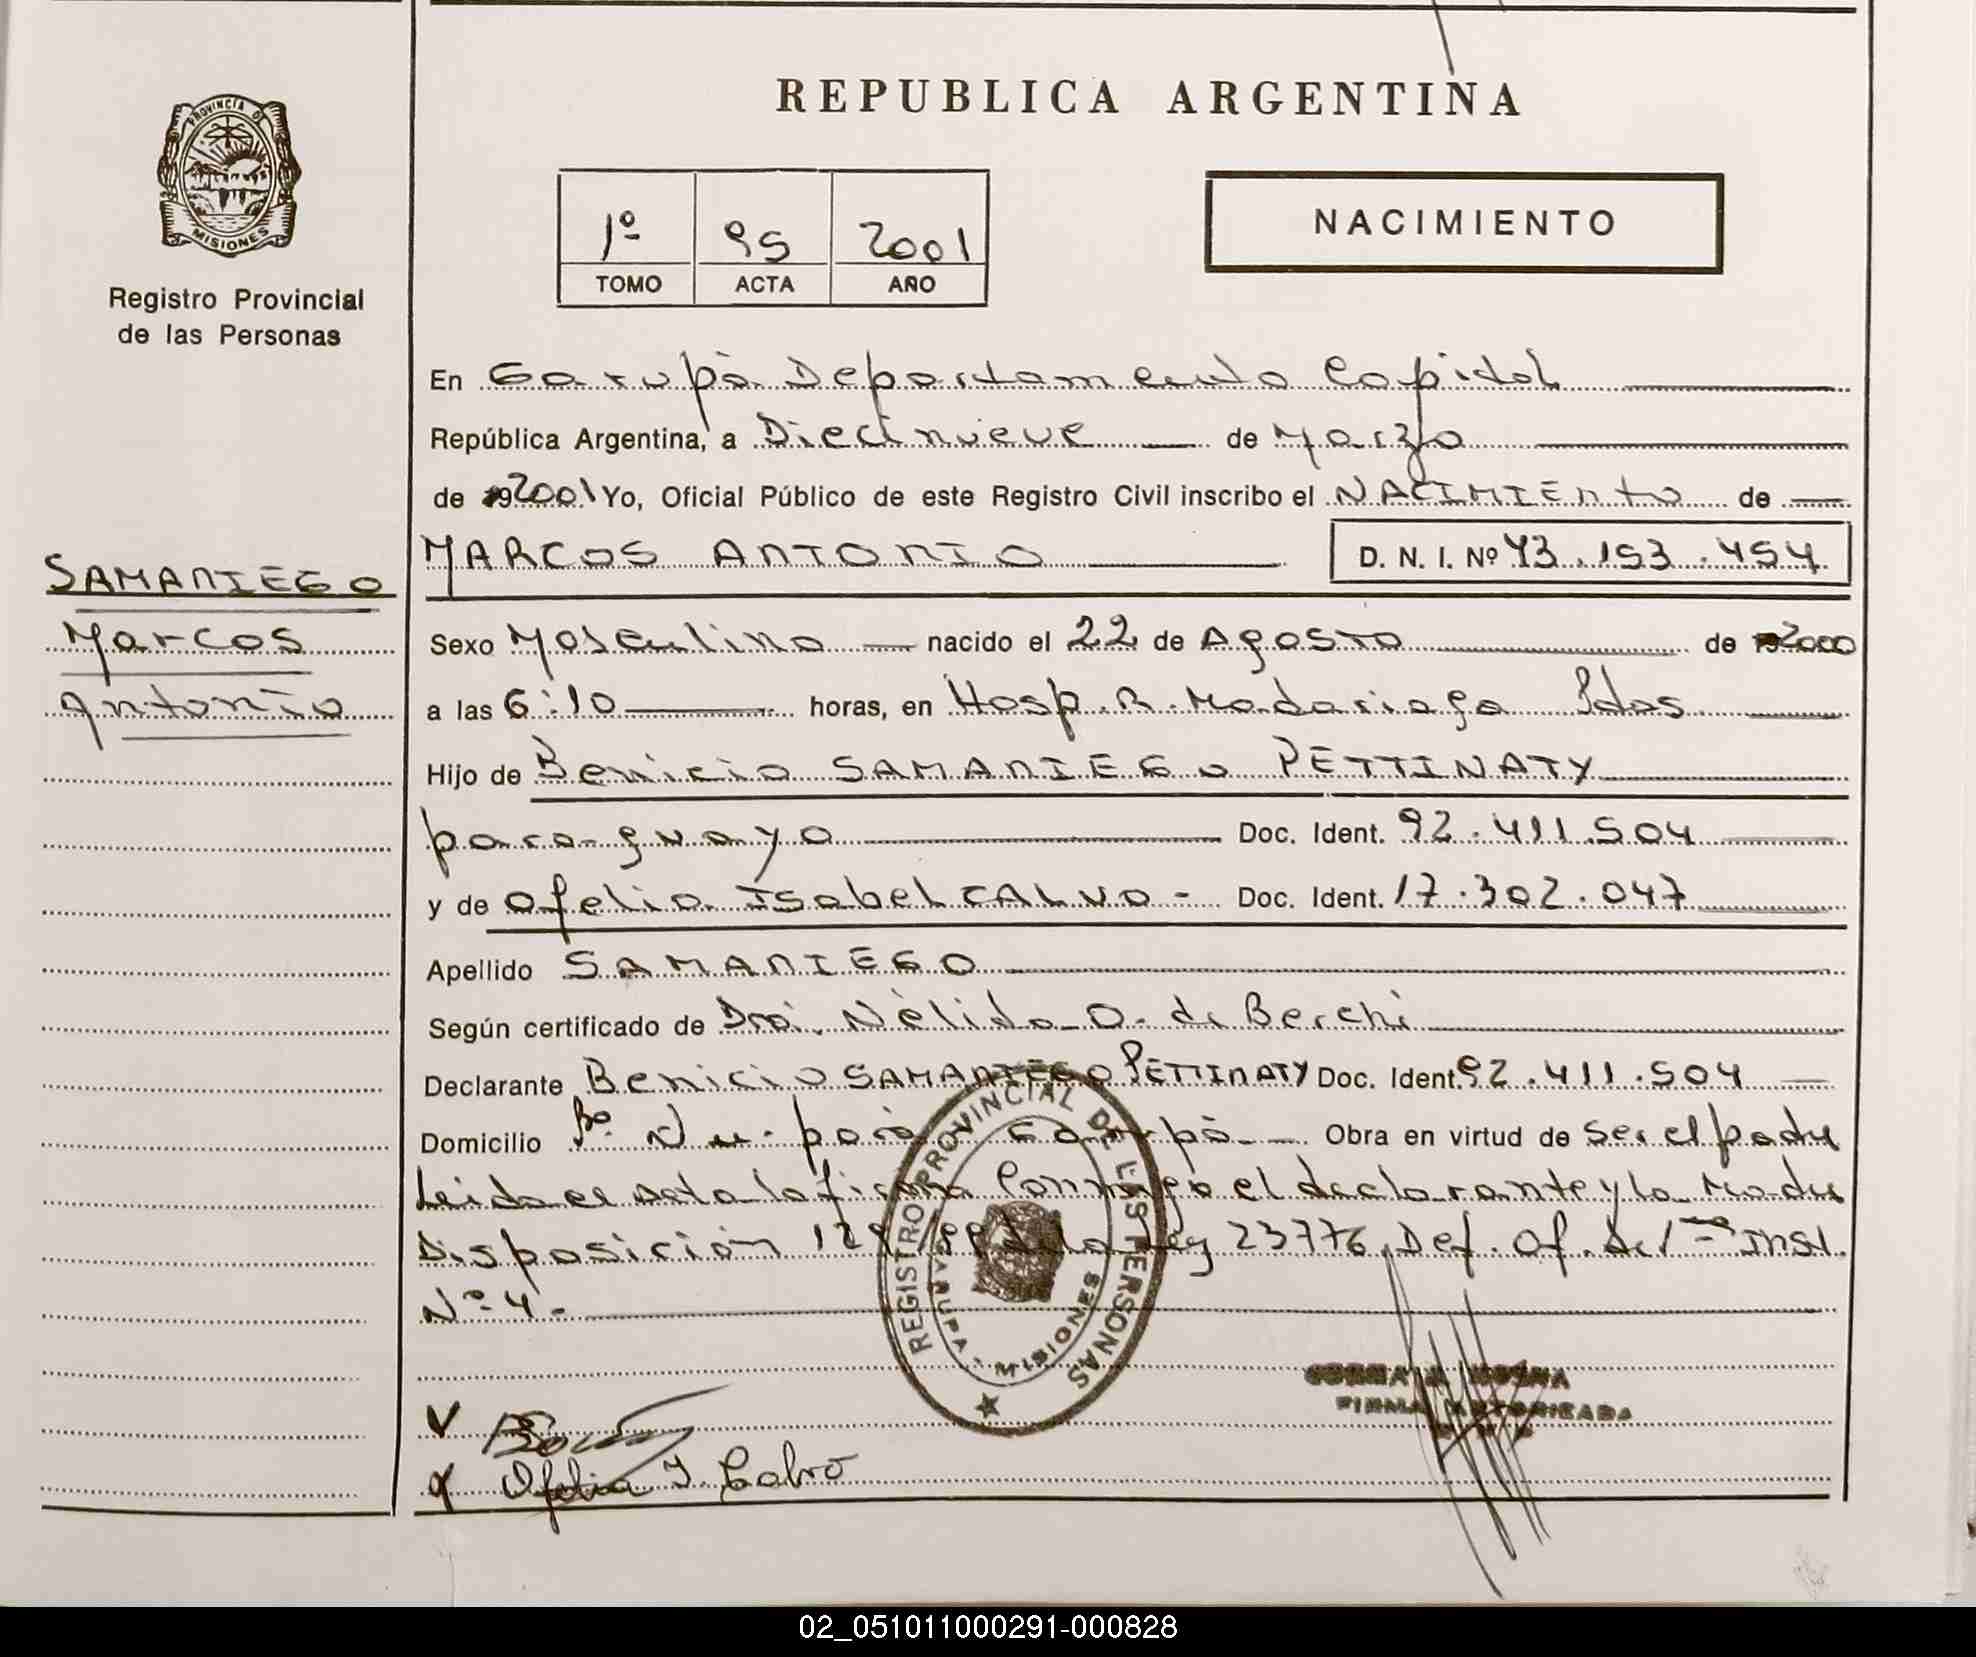 REPUBLICA ARGENTINA
PROVINCIA DE
MISIONES
Registro Provincial
de las Personas
1º 95 2001
TOMO ACTA AÑO
NACIMIENTO
En Garupá Departamento Capital
República Argentina, a Diecinueve de Marzo
de 19 2001 Yo, Oficial Público de este Registro Civil inscribo el NACIMIEnto de
MARCOS ANTONIO D. N. I. Nº 43.153.454
SAMANIEGO
Marcos
Antonio
Sexo Masculino nacido el 22 de Agosto de 2000
a las 6:10 horas, en Hosp. R. Madariaga Pdas
Hijo de Benicio SAMANIEGO PETTINATY
paraguayo Doc. Ident. 92.411.504
y de Ofelia Isabel CALVO - Doc. Ident. 17.302.047
Apellido SAMANIEGO
Según certificado de Dra. Nélida O. de Berchi
Declarante Benicio SAMANIEGO PETTINATY Doc. Ident. 92.411.504
Domicilio Bº Ñu-porá Garupá Obra en virtud de ser el padre
Leida el acta la firma Conmigo el declarante y la Madre
Disposición de la Ley 23776, Def. Of. de 1ra Inst.
Nº 4 -
REGISTRO PROVINCIAL DE LAS PERSONAS
GARUPA - MISIONES
FIRMA AUTORIZADA
Ofelia I. Calvo
02_051011000291-000828